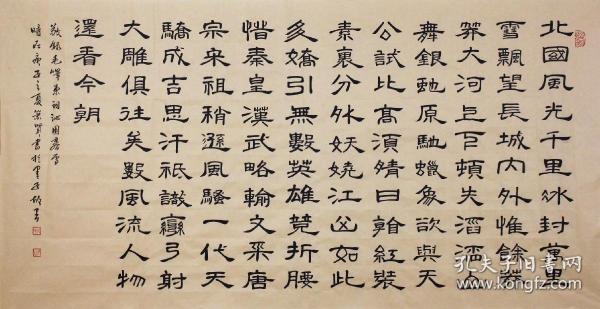 北國風光千里冰封萬里
雪飄望長城內外惟餘莽
莽大河上下頓失滔滔山
舞銀蛇原馳蠟象欲與天
公試比高須晴日看紅裝
素裹分外妖嬈江山如此
多嬌引無數英雄競折腰
惜秦皇漢武略輸文采唐
宗宋祖稍遜風騷一代天
驕成吉思汗祇識彎弓射
大雕俱往矣數風流人物
還看今朝
敬錄毛澤東詞沁園春雪
庚子之夏 書於
孔夫子旧书网
www.kongfz.com